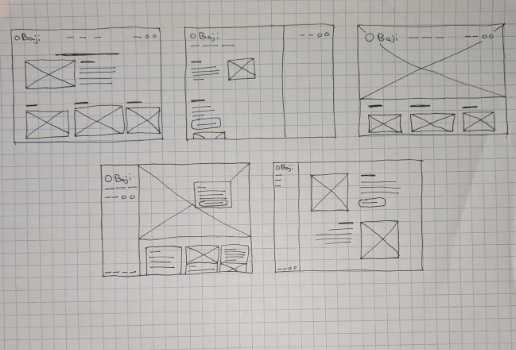 Baji
Baji
Baji
Baji
Baji